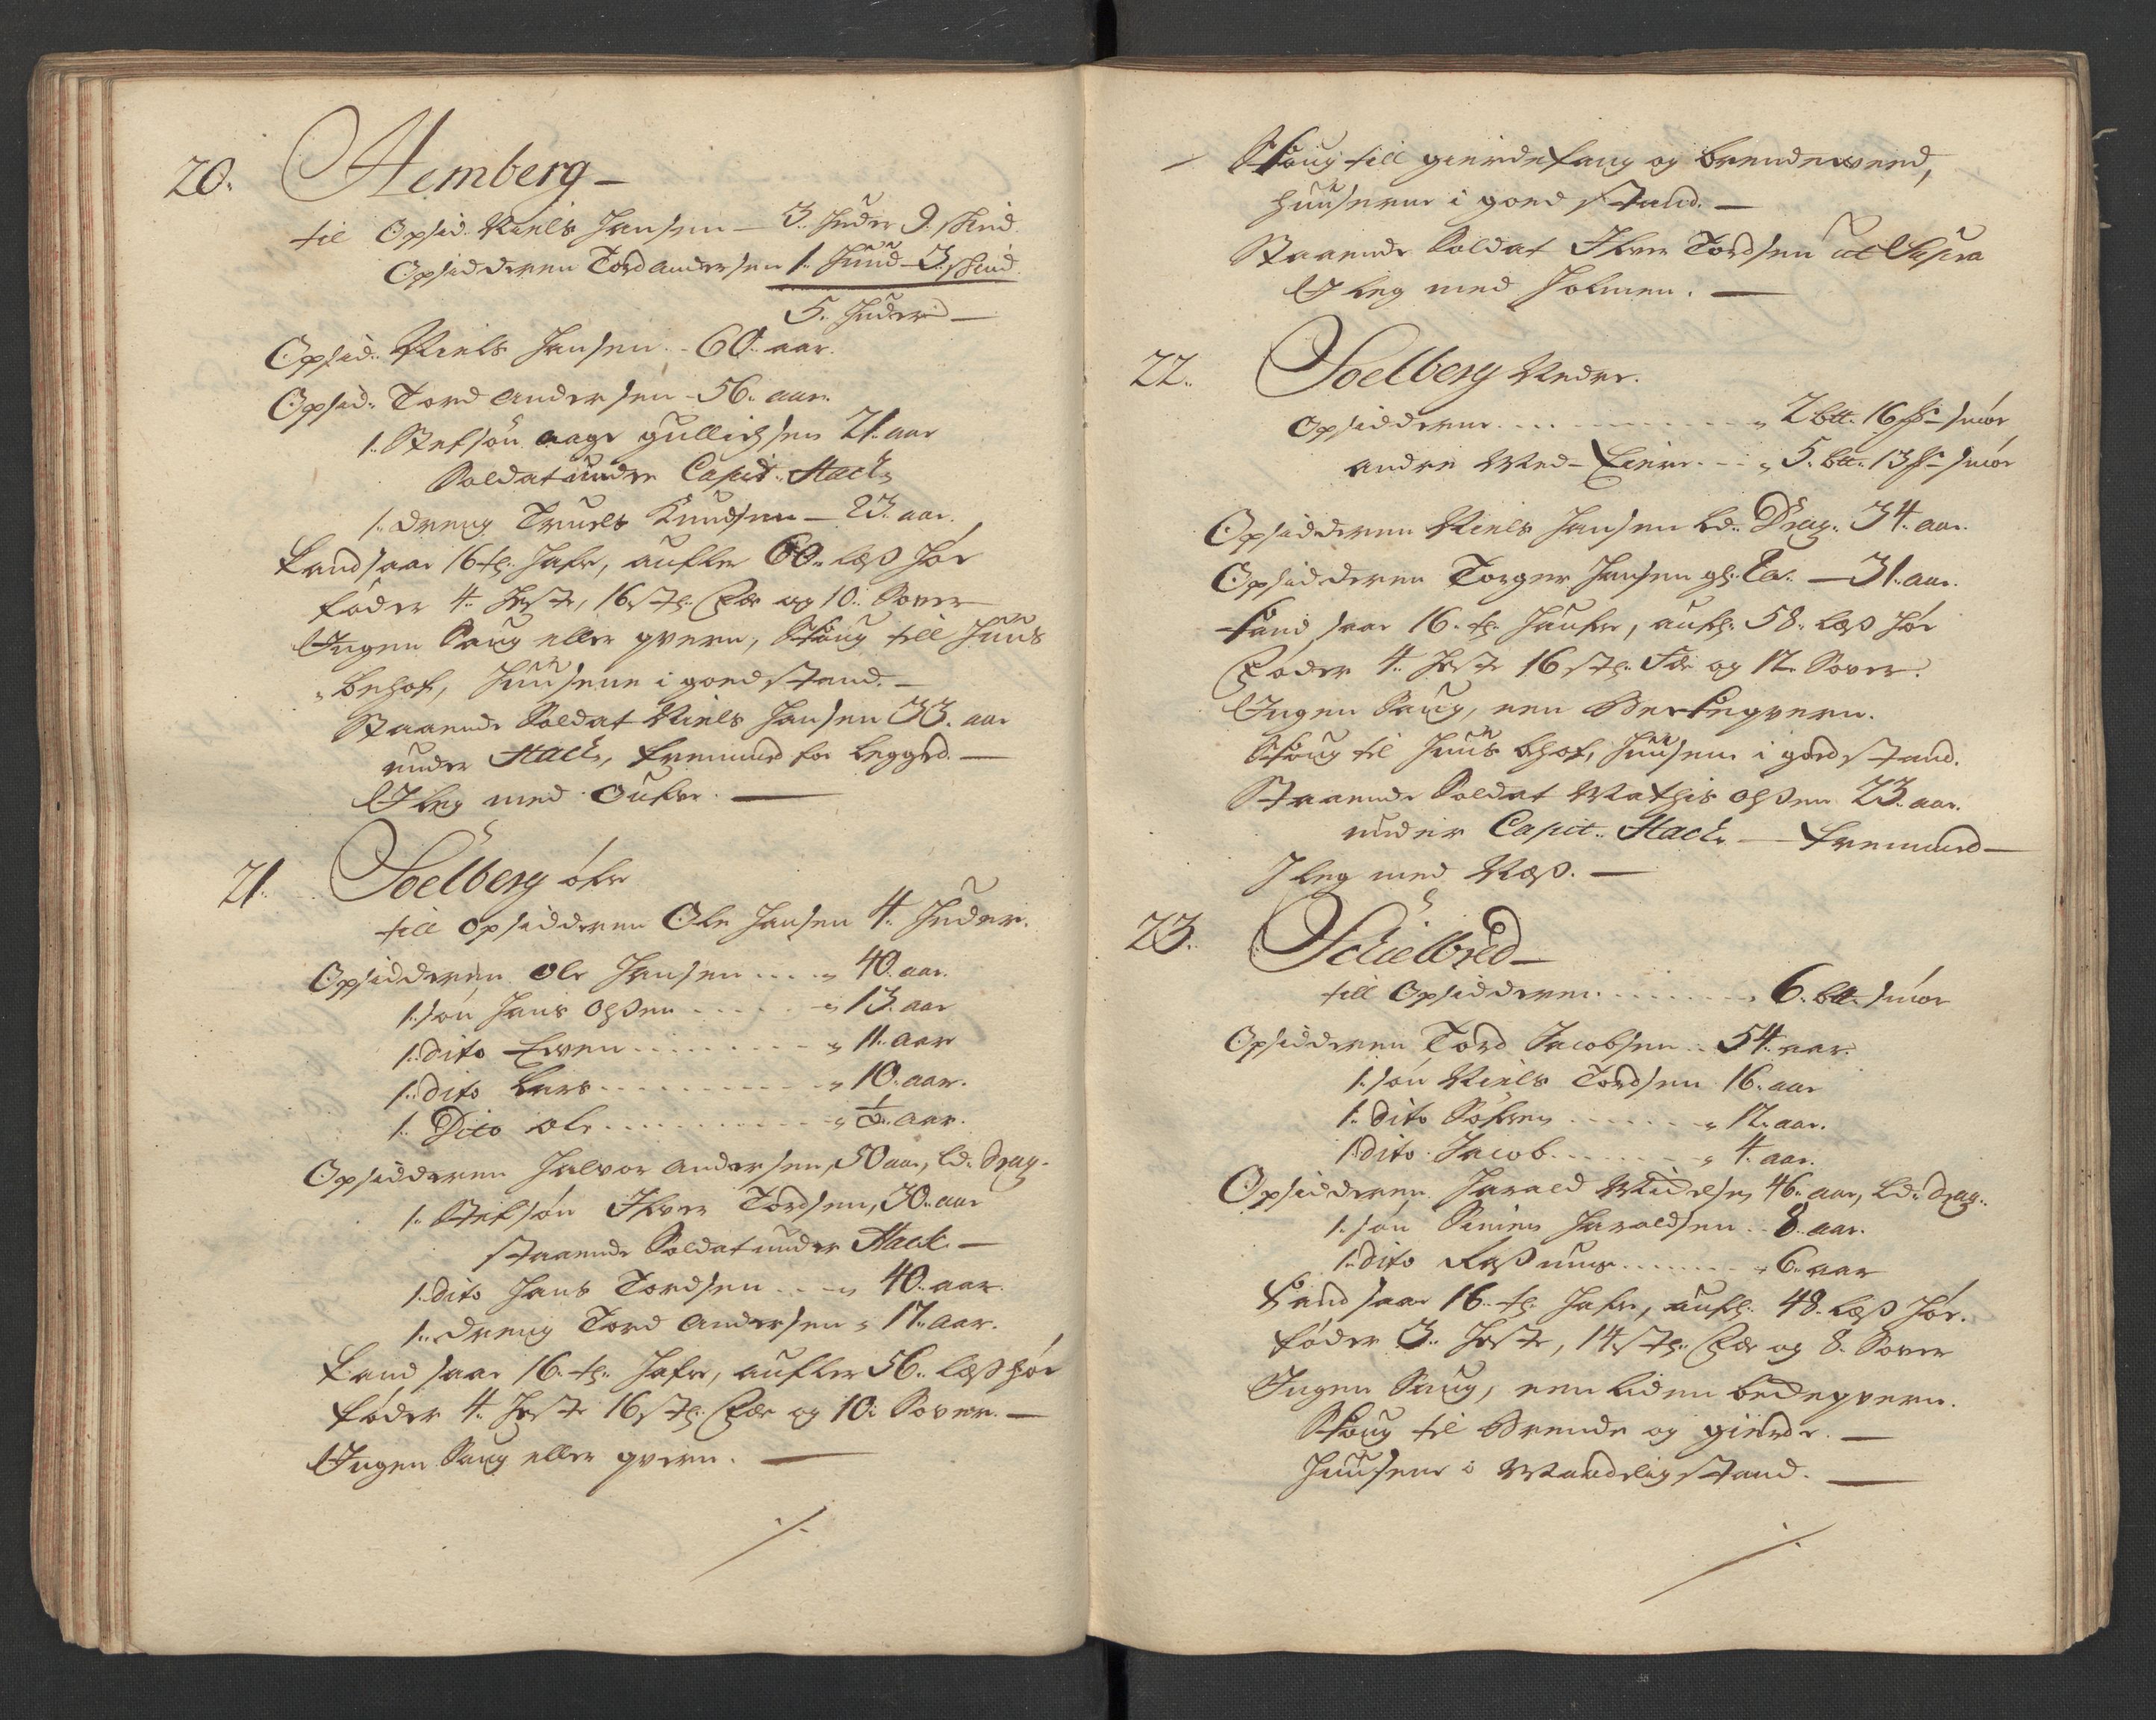 20. Hemberg –
til Opsid. Niels Hansen – 3. Huder 9. skind
Opsidderen Tord Andersen 1. Huud 3. skind
5. Huder –
Opsid. Niels Hansen – 60. aar.
Opsid. Tord Andersen – 56. aar.
1. Stefsøn Aage Gullichsen 21. aar
Soldat under Capit. Hack
1. dreng Truels Knudsen – 23. aar.
kand saae 16 tr. Hafre, aufler 60. læs høe
føder 4. Heste, 16 stk. Fæe og 10. Souer
Ingen Saug eller qvern, Skoug till Huus
behof, Huusene i goed stand. –
Staaende Soldat Niels Hansen 33. aar
under Hack, fremmed for legged. –
I leg med Oufre. –
21. Soelberg øfre
till opsidderen Ole Hansen 4. Huder.
Opsidderen Ole Hansen .... 40. aar.
1. søn Hans Olsen ..... 13. aar
1. dito Even ........ 11. aar
1. dito Lars ......... 10. aar.
1. Dito Ole ..........  aar.
Opsidderen Halvor Andersen, 50 aar, Ld. drag.
1. Stefsøn Ifver Tordsen, 30. aar
staaende Soldat under Hack –
1. dito Hans Tordsen ... 40. aar.
1. dreng Tord Andersen 17. aar.
kand saae 16. tr. Hafre, aufler 56. læs høe
føder 4. Heste 16 stk. Fæe og 10. Souer. –
Ingen Saug eller qvern. –
./.
Skoug till gierdefang og brendeveed,
huusene i goed stand. –
Staaende Soldat Ifver Tordsen ut Supra
I leg med Holmen. –
22. Soelberg Nedre.
Opsidderne ........ 2 btt. 16 smør
andre Med-Eiere ... 5. btt. 13 smør
Opsidderen Niels Hansen Ld. Drag. 34. aar.
Opsidderen Torger Hansen – 31. aar.
kand saae 16. tr. Haufre, aufl. 58. læs høe
Føder 4. Heste 16 stk. Fæ og 12. Souer.
Ingen Saug, een Beckeqvern.
Skoug til Huus behof, Huusene i goed stand.
Staaende Soldat Mathis Olsen 23. aar.
under Capit. Hack – fremmed –
I leg med Næs. –
23. Schielbred –
till Opsidderen ........ 6. btt. smør
Opsidderen Tord Jacobsen .. 54. aar.
1. søn Niels Tordsen 16. aar
1. dito Søfren ...... 12. aar.
1. dito Jacob ....... 4. aar.
Opsidderen Harald  46. aar, Ld. drag.
1. søn Simen Haraldsen .. 8. aar.
1. dito Rasmus ....... 6. aar
kand saae 16. tr. Hafre, aufl. 48. læs høe.
føder 3. Heste, 14 stk. Fæe og 8. Souer
Ingen Saug, een liden beckeqvern.
Skoug til Brende og gierde. –
Huusene i Maadelig stand. –
./.